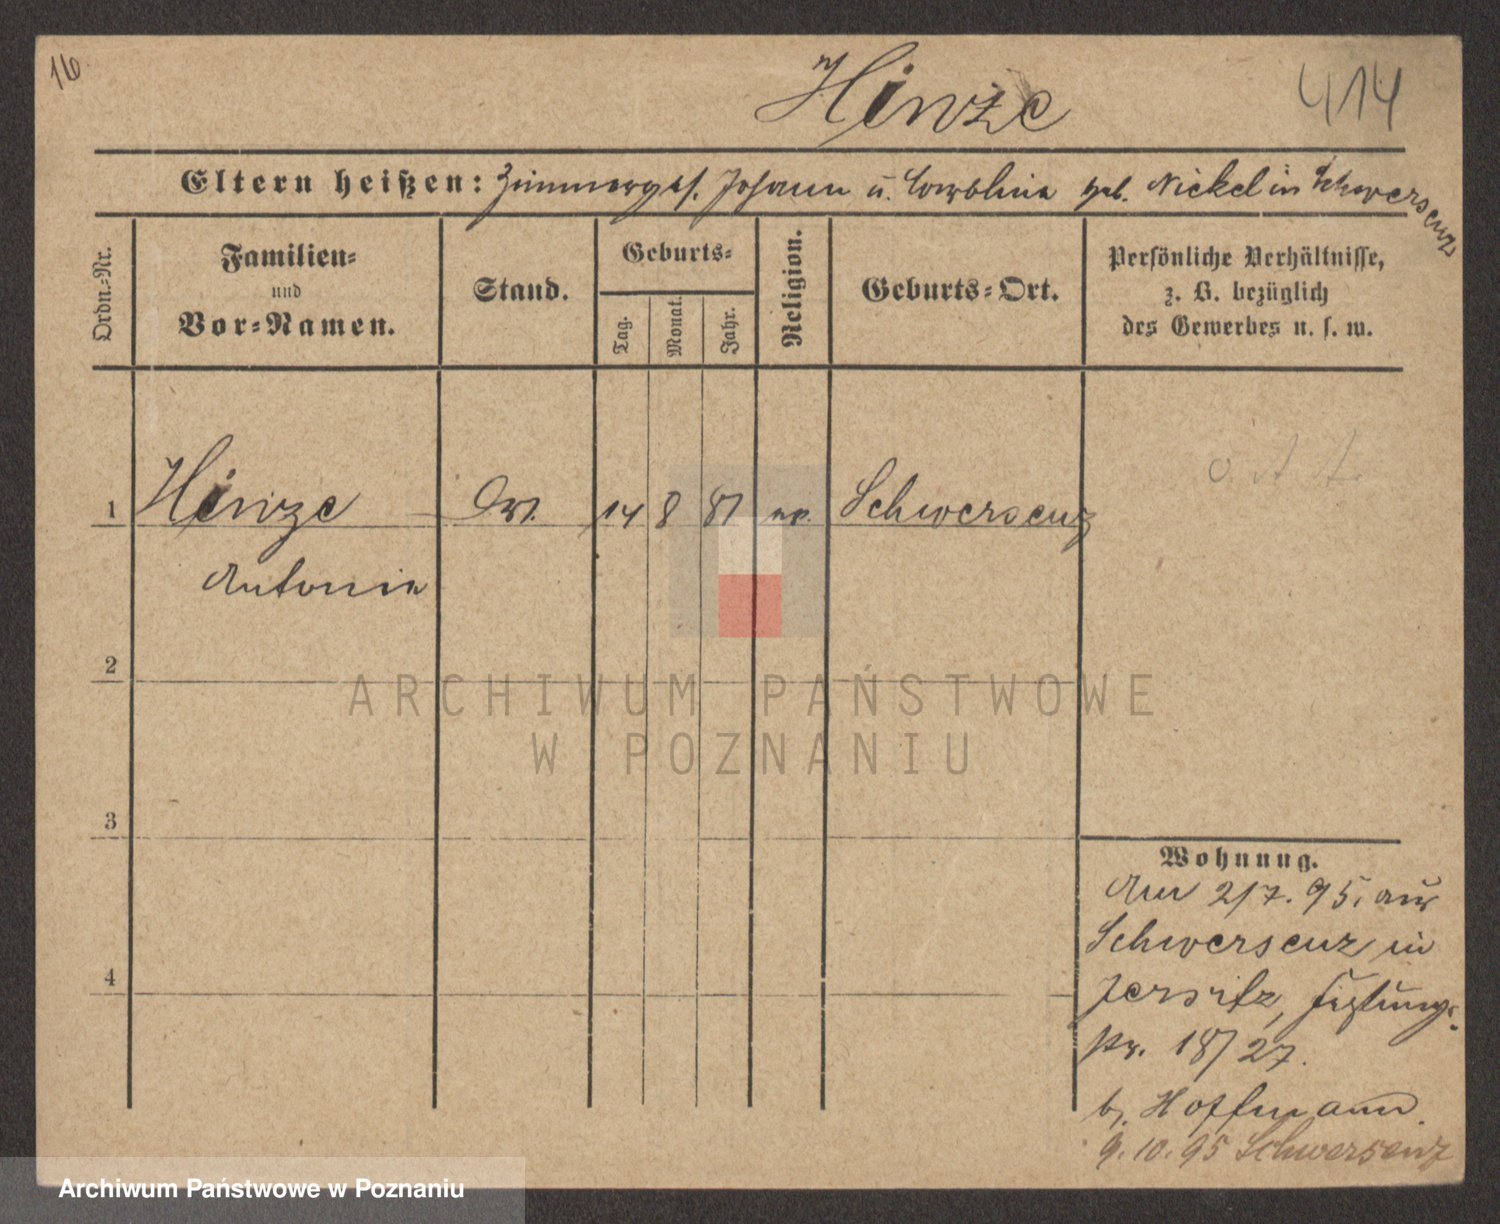 16
Hinze
414
Eltern heißen: Zimmerges. Johann u. Karoline geb. Nickel in Schwersenz
Ordn.-Nr.
Familien-
und
Vor-Namen.
Stand.
Geburts-
Tag.
Monat.
Jahr.
Religion.
Geburts-Ort.
Persönliche Verhältnisse,
z. B. bezüglich
des Gewerbes u. s. w.
1
Hinze
14 8 81
Schwersenz
Antonie
2
ARCHIWUM PAŃSTWOWE
W POZNANIU
3
Wohnung.
2/7. 95. aus
Schwersenz in
4
Jersitz,
str. 18/27.
b. Hoffmann.
9. 10. 95 Schwersenz
Archiwum Państwowe w Poznaniu